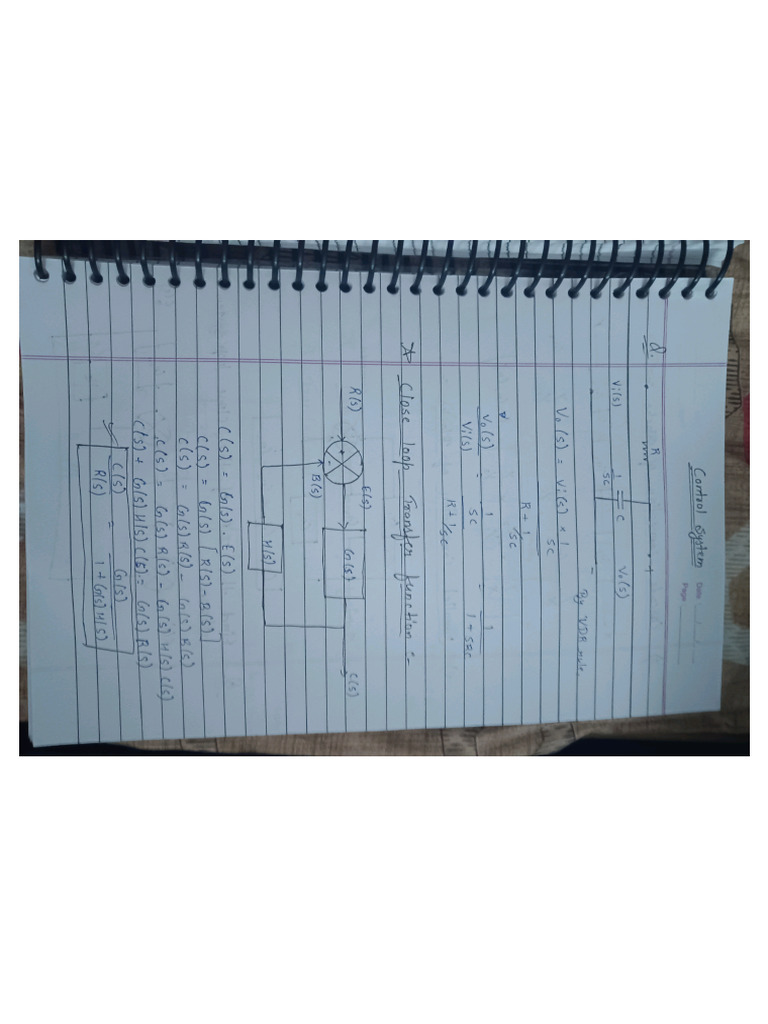 Control System
Date
Page
Q.
R
+
Vi(s)
1/sc
C
Vo(s)
-
By VDR rule
Vo(s) = Vi(s) × 1/sc
R + 1/sc
Vo(s)/Vi(s) = 1/sc / R + 1/sc = 1/1 + SRC
* Close loop Transfer function :-
R(s)
E(s)
G(s)
C(s)
B(s)
H(s)
C(s) = G(s) . E(s)
C(s) = G(s) [R(s) - B(s)]
C(s) = G(s) R(s) - G(s) B(s)
C(s) = G(s) R(s) - G(s) H(s) C(s)
C(s) + G(s) H(s) C(s) = G(s) R(s)
C(s)/R(s) = G(s)/1 + G(s) H(s)